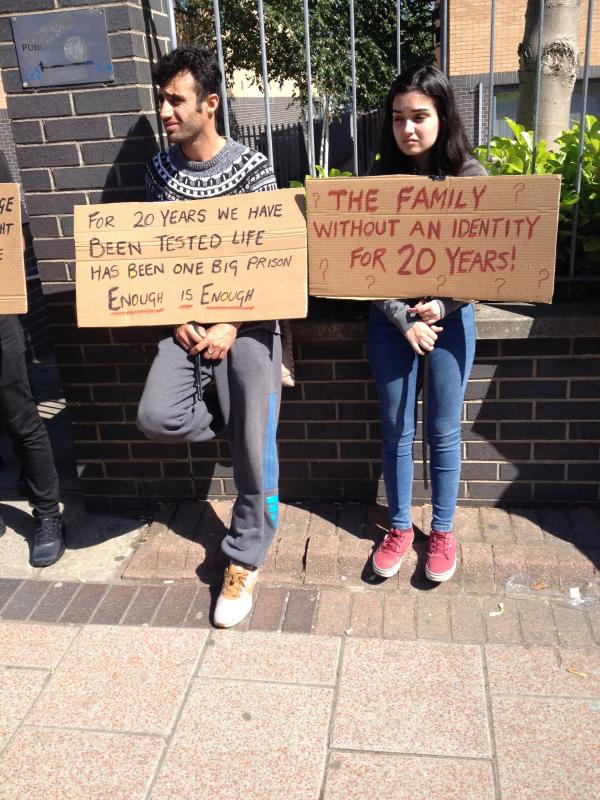 PUBL
GE
HT
E
FOR 20 YEARS WE HAVE
BEEN TESTED LIFE
HAS BEEN ONE BIG PRISON
ENOUGH IS ENOUGH
? THE FAMILY ?
WITHOUT AN IDENTITY
FOR 20 YEARS!
? ? ? ? ?